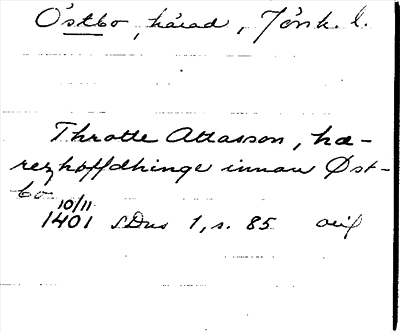 Östbo, härad, Jönk. l.
Throtte Attasson, hæ-
rezhoffdhinge innan Øst-
bo
10/11
1401 SDns 1, s. 85 orig